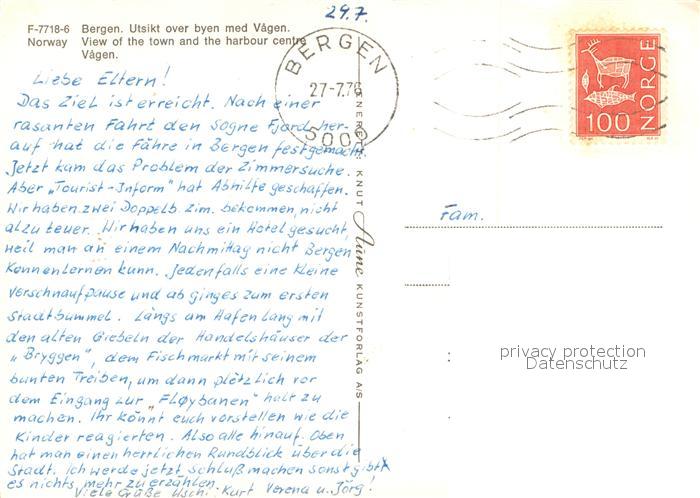 29.7.
F-7718-6 Bergen. Utsikt over byen med Vågen.
Norway View of the town and the harbour centre
Vågen.
BERGEN
27-7.76
5000
NORGE
100
Liebe Eltern!
Das Ziel ist erreicht. Nach einer
rasanten Fahrt den Sogne Fjord her-
auf hat die Fähre in Bergen festgemacht.
Jetzt kam das Problem der Zimmersuche.
Aber „Tourist-Inform" hat Abhilfe geschaffen.
Wir haben zwei Doppelb. Zim. bekommen, nicht
alzu teuer. Wir haben uns ein Hotel gesucht,
weil man an einem Nachmittag nicht Bergen
Kennenlernen kann. Jedenfalls eine kleine
Verschnaufpause und ab ginges zum ersten
Stadtbummel. Längs am Hafen lang mit
den alten Giebeln der Handelshäuser der
„Bryggen", dem Fischmarkt mit seinem
bunten Treiben, um dann plötzlich vor
dem Eingang zur „Fløybanen" halt zu
machen. Ihr könnt euch vorstellen wie die
Kinder reagierten. Also alle hinauf. Oben
hat man einen herrlichen Rundblick über die
Stadt. Ich werde jetzt Schluß machen sonst gibt
es nichts mehr zu erzählen.
Viele Grüße Uschi. Kurt Verena u. Jörg!
ENERETT: KNUT Aune KUNSTFORLAG A/S
Fam.
privacy protection
Datenschutz